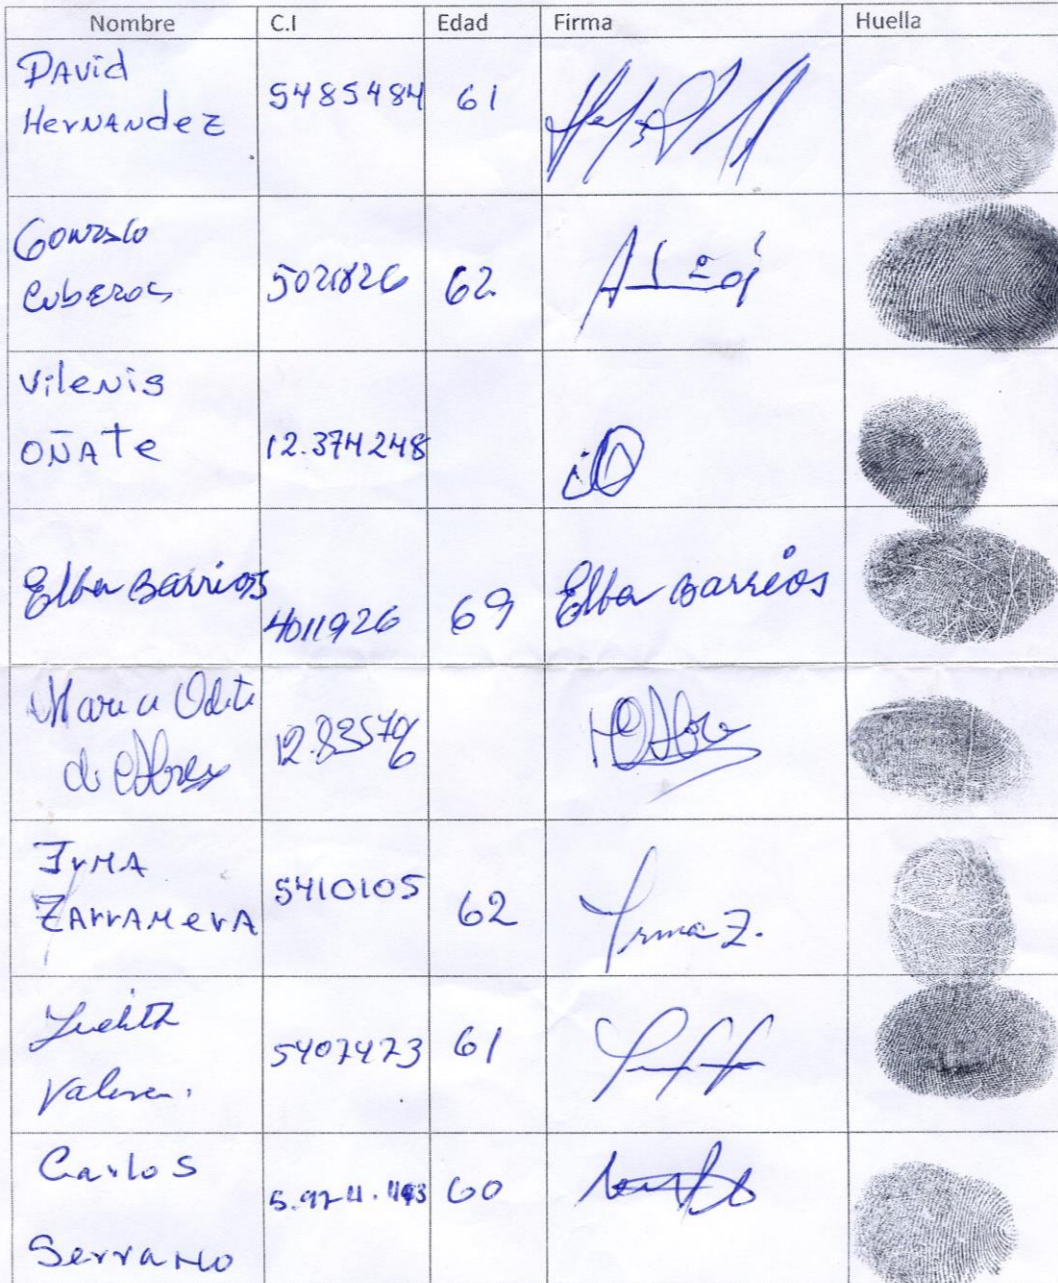 Nombre C.I Edad Firma Huella
DAvid
HerNANdez 5485484 61
Gonzalo
Cuberos 5021826 62
Vilenis
OÑATe 12.374248
Elba Barrios 4011926 69 Elba Barrios
Maria Odete
de
IrMA
ZArrAMerA 5410105 62 Irma Z.
Judith
5407473 61
Carlos
Serrano 60